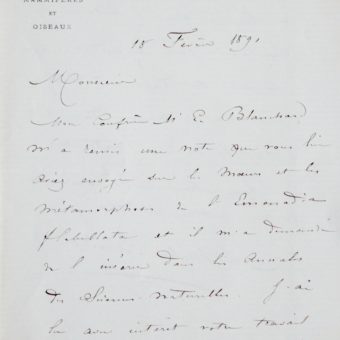 MAMMIFÈRES
ET
OISEAUX
18 Février 1891
Monsieur
Mon Confrère Mr E. Blanchard
m'a remis une note que vous lui
avez envoyée sur les Mœurs et les
métamorphoses de l'Emenadia
flabellata et il m'a demandé
de l'insérer dans les Annales
des Sciences naturelles. J'ai
lu avec intérêt votre travail